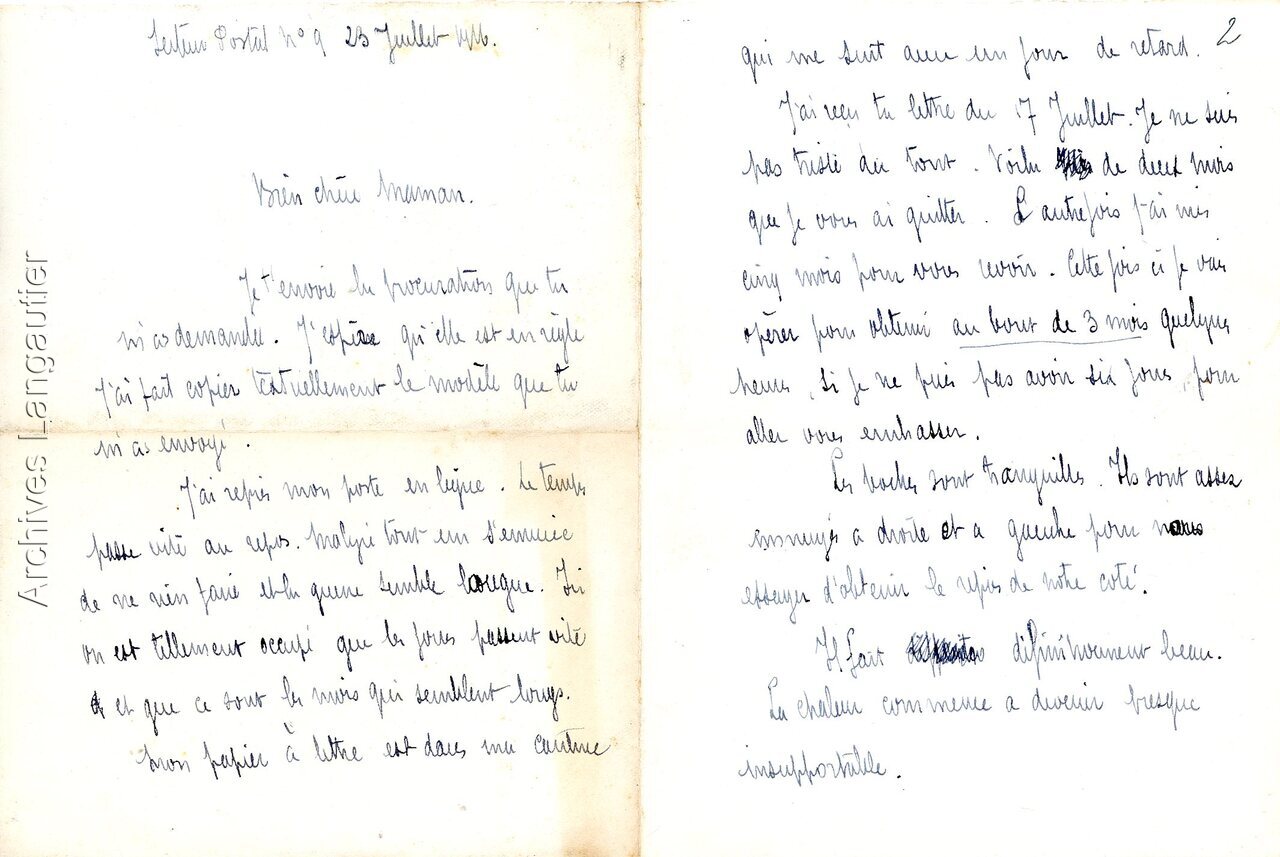 Secteur Postal n° 9 23 Juillet 1916.
Bien chère Maman.
Je t'envoie la procuration que tu
m'as demandée. J'espère qu'elle est en règle
J'ai fait copier textuellement le modèle que tu
m'as envoyé.
J'ai repris mon poste en ligne. Le temps
passe vite au repos. Malgré tout on s'ennuie
de ne rien faire et la guerre semble longue. Ici
on est tellement occupé que les jours passent vite
et que ce sont les mois qui semblent longs.
Mon papier à lettre est dans ma cantine
2
qui me suit avec un jour de retard.
J'ai reçu ta lettre du 17 Juillet. Je ne suis
pas triste du tout. Voila de deux mois
que je vous ai quitter. L'autrefois j'ai mis
cinq mois pour vous revoir. Cette fois ci je vais
opérer pour obtenir au bout de 3 mois quelques
heures, si je ne puis pas avoir six jours, pour
aller vous embrasser.
Les boches sont tranquilles. Ils sont assez
ennuyés a droite et a gauche pour
essayer d'obtenir le repos de notre coté.
Il fait beau.
La chaleur commence a devenir presque
insupportable.
Archives Langautier